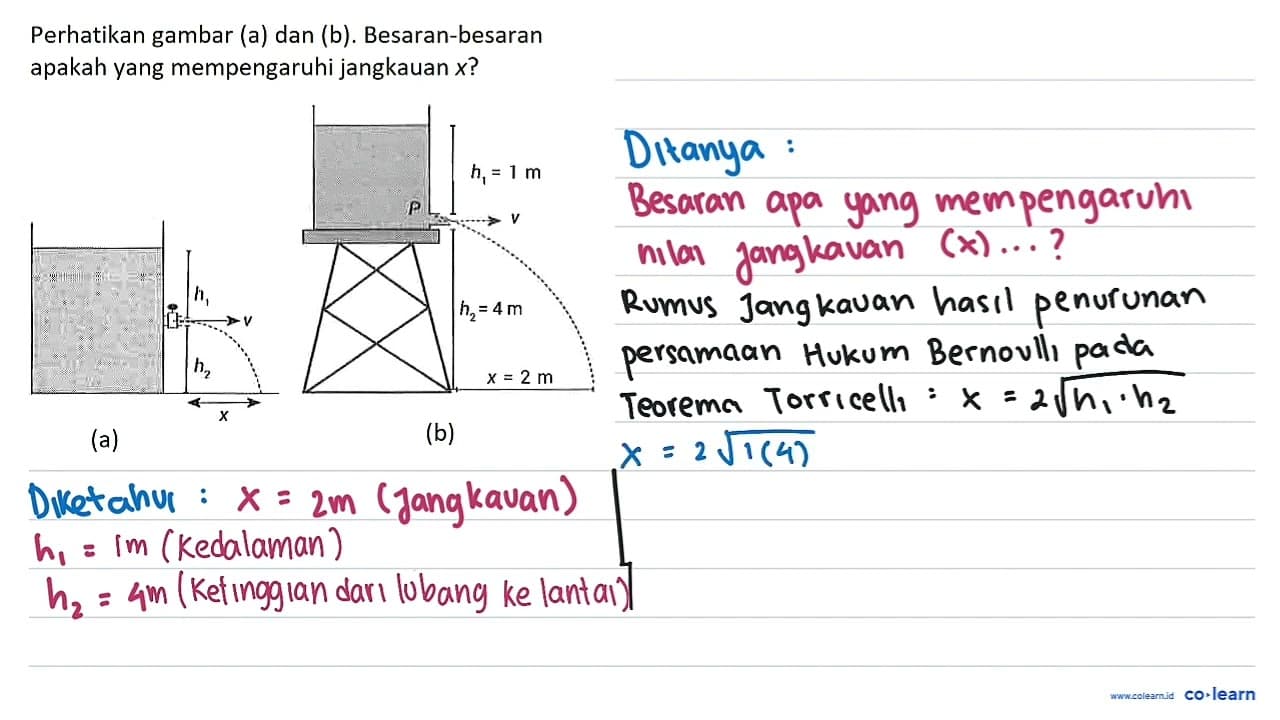 Perhatikan gambar (a) dan (b). Besaran-besaran
apakah yang mempengaruhi jangkauan x?
h₁ = 1 m
P
v
h₂ = 4 m
x = 2 m
(b)
h₁
v
h₂
x
(a)
Diketahui : x = 2m (Jangkauan)
h₁ = 1m (Kedalaman)
h₂ = 4m (Ketinggian dari lubang ke lantai)
Ditanya :
Besaran apa yang mempengaruhi
nilai jangkauan (x)...?
Rumus Jangkauan hasil penurunan
persamaan Hukum Bernoulli pada
Teorema Torricelli : x = 2√h₁·h₂
x = 2√1(4)
www.colearn.id co·learn